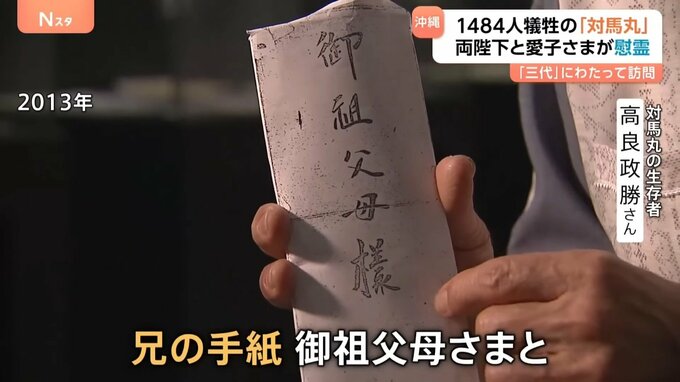 Nスタ
沖縄
1484人犠牲の「対馬丸」
両陛下と愛子さまが慰霊
「三代」にわたって訪問
2013年
対馬丸の生存者
高良政勝さん
御祖父母様
兄の手紙 御祖父母さまと